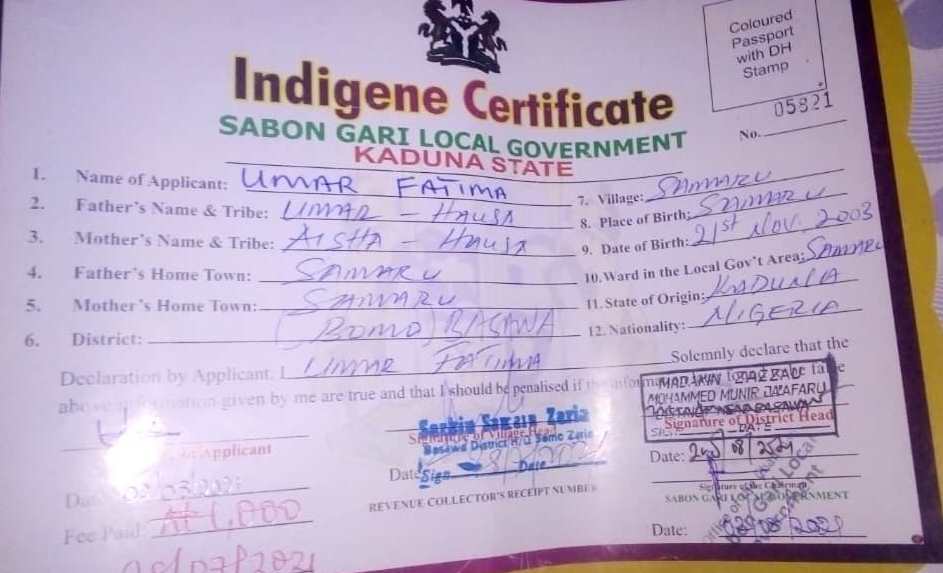 Coloured
Passport
with DH
Stamp
05821
No.
Indigene Certificate
SABON GARI LOCAL GOVERNMENT
KADUNA STATE
1. Name of Applicant: UMAR FATIMA
2. Father's Name & Tribe: UMAR - HAUSA
3. Mother's Name & Tribe: AISHA - HAUSA
4. Father's Home Town: SAMARU
5. Mother's Home Town: SAMARU
6. District: (BOMO) BASAWA
7. Village: SAMARU
8. Place of Birth: SAMARU
9. Date of Birth: 21st Nov. 2003
10. Ward in the Local Gov't Area: SAMARU
11. State of Origin: KADUNA
12. Nationality: NIGERIA
Declaration by Applicant. I UMAR FATIMA Solemnly declare that the
above information given by me are true and that I should be penalised if the
Applicant
Fee Paid: 1,000
Sarkin Samaru Zaria
Signature of Village Head
Basawa District H/Q Bomo Zaria
Date
Sign Date
REVENUE COLLECTOR'S RECEIPT NUMBER
MADAKIN ZAZZAU
MOHAMMED MUNIR
Signature of District Head
DATE
Date:
Signature of the Chairman
SABON GARI LOCAL GOVERNMENT
Date: